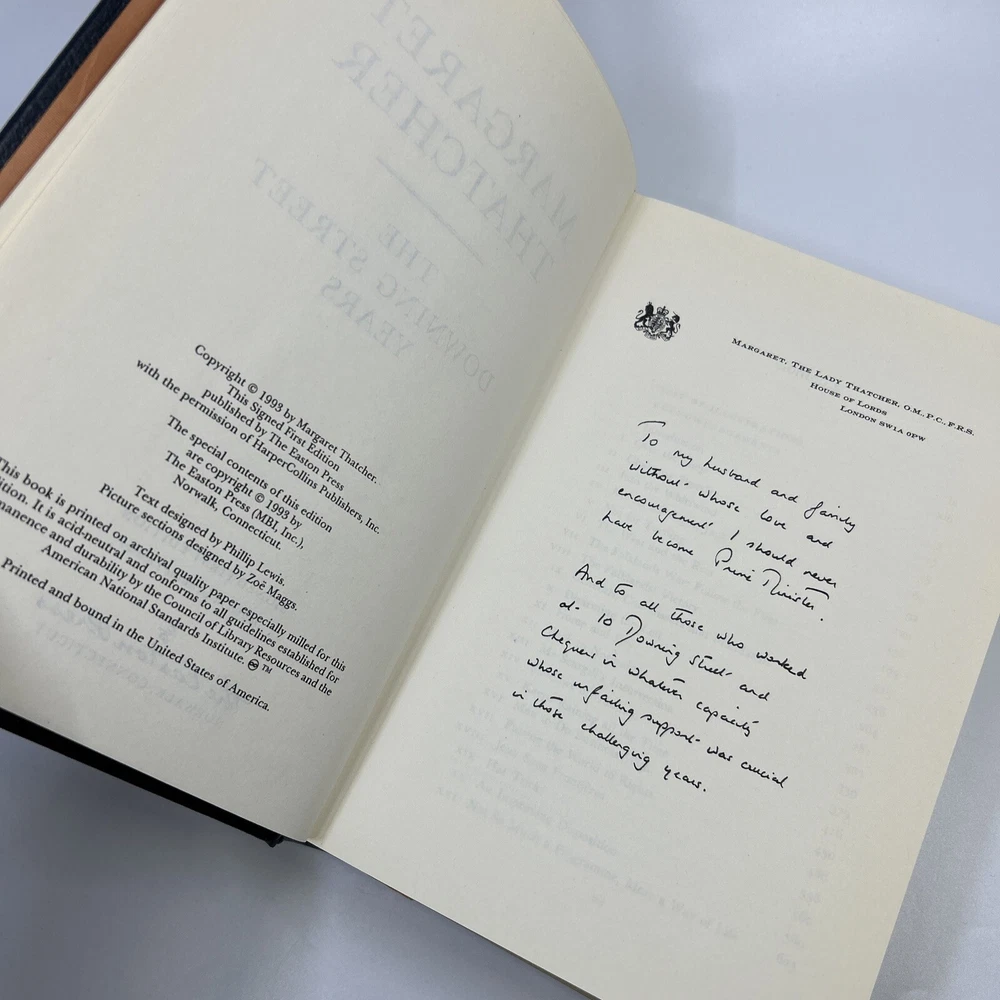 MARGARET
THATCHER
THE
DOWNING STREET
YEARS
Copyright © 1993 by Margaret Thatcher.
This Signed First Edition
published by The Easton Press
with the permission of HarperCollins Publishers, Inc.
The special contents of this edition
are copyright © 1993 by
The Easton Press (MBI, Inc.),
Norwalk, Connecticut.
Text designed by Phillip Lewis.
Picture sections designed by Zoë Maggs.
This book is printed on archival quality paper especially milled for this
ition. It is acid-neutral and conforms to all guidelines established for
manence and durability by the Council of Library Resources and the
American National Standards Institute. ∞ TM
Printed and bound in the United States of America.
MARGARET, THE LADY THATCHER, O.M., P.C., F.R.S.
HOUSE OF LORDS
LONDON SW1A 0PW
To my husband and family
without whose love and
encouragement I should never
have become Prime Minister.
And to all those who worked
at 10 Downing Street and
Chequers in whatever capacity
whose unfailing support was crucial
in those challenging years.